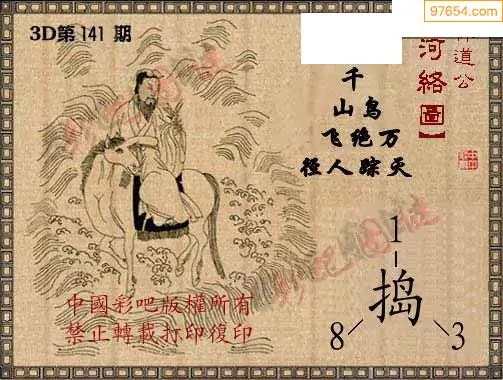 97654.com
3D第141期
道公
河絡圖】
千
山鸟
飞绝万
径人踪灭
1
捣
8
3
中國彩吧版權所有
禁止轉載打印復印